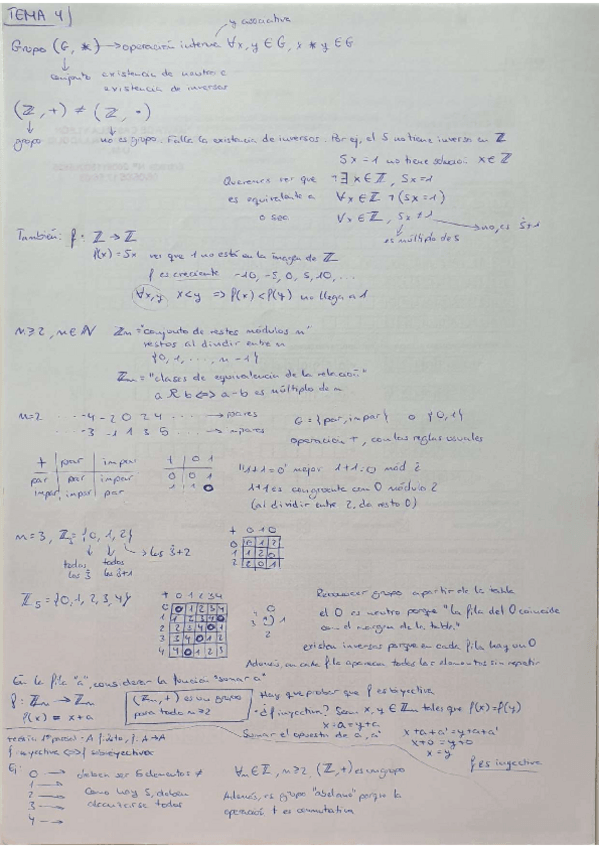 TEMA 4
y asociativa
Grupo (G, *) → operación interna ∀x, y ∈ G, x * y ∈ G
conjunto existencia de neutro e
existencia de inversos
(ℤ, +) ≠ (ℤ, ·)
grupo no es grupo. Falla la existencia de inversos. Por ej, el 5 no tiene inverso en ℤ
5x = 1 no tiene solución x ∈ ℤ
Queremos ver que ¬∃ x ∈ ℤ, 5x = 1
es equivalente a ∀x ∈ ℤ ¬(5x = 1)
o sea ∀x ∈ ℤ, 5x ≠ 1 → no, es 5̇+1
es múltiplo de 5
También: f: ℤ → ℤ
f(x) = 5x ver que 1 no está en la imagen de ℤ
f es creciente -10, -5, 0, 5, 10, ...
∀x, y x < y ⇒ f(x) < f(y) no llega a 1
n ≥ 2, n ∈ ℕ ℤn = "conjunto de restos módulos n"
restos al dividir entre n
{0, 1, ..., n-1}
ℤn = "clases de equivalencia de la relación"
a R b ⇔ a - b es múltiplo de n
n=2 ... -4 -2 0 2 4 ... → pares G = {par, impar} o {0, 1}
... -3 -1 1 3 5 ... → impares operación +, con las reglas usuales
+ par impar
par par impar
impar impar par
+ 0 1
0 0 1
1 1 0
"1+1=0" mejor 1+1=0 mód 2
1+1 es congruente con 0 módulo 2
(al dividir entre 2, da resto 0)
n=3, ℤ3 = {0, 1, 2} → los 3̇+2
todos todos
los 3̇ los 3̇+1
+ 0 1 0
0 0 1 2
1 1 2 0
2 2 0 1
ℤ5 = {0, 1, 2, 3, 4}
+ 0 1 2 3 4
0 0 1 2 3 4
1 1 2 3 4 0
2 2 3 4 0 1
3 3 4 0 1 2
4 4 0 1 2 3
Reconocer grupo a partir de la tabla
el 0 es neutro porque "la fila del 0 coincide
con el margen de la tabla."
existen inversos porque en cada fila hay un 0
Además, en cada fila aparecen todos los elementos sin repetir
En la fila "a", considerar la función "sumar a"
f: ℤn → ℤn
f(x) = x + a
(ℤn, +) es un grupo
para todo n ≥ 2
Hay que probar que f es biyectiva
· ¿f inyectiva? Sean x, y ∈ ℤn tales que f(x) = f(y)
x + a = y + a
Sumar el opuesto de a, a' x + a + a' = y + a + a'
x + 0 = y + 0
x = y
f es inyectiva
A finito, f: A → A
f inyectiva ⇔ f sobreyectiva
0 → deben ser 5 elementos ≠
1 →
2 → Como hay 5, deben
3 → todos
4 →
∀n ∈ ℤ, n ≥ 2, (ℤ, +) es un grupo
Además, es grupo "abeliano" porque la
operación + es conmutativa